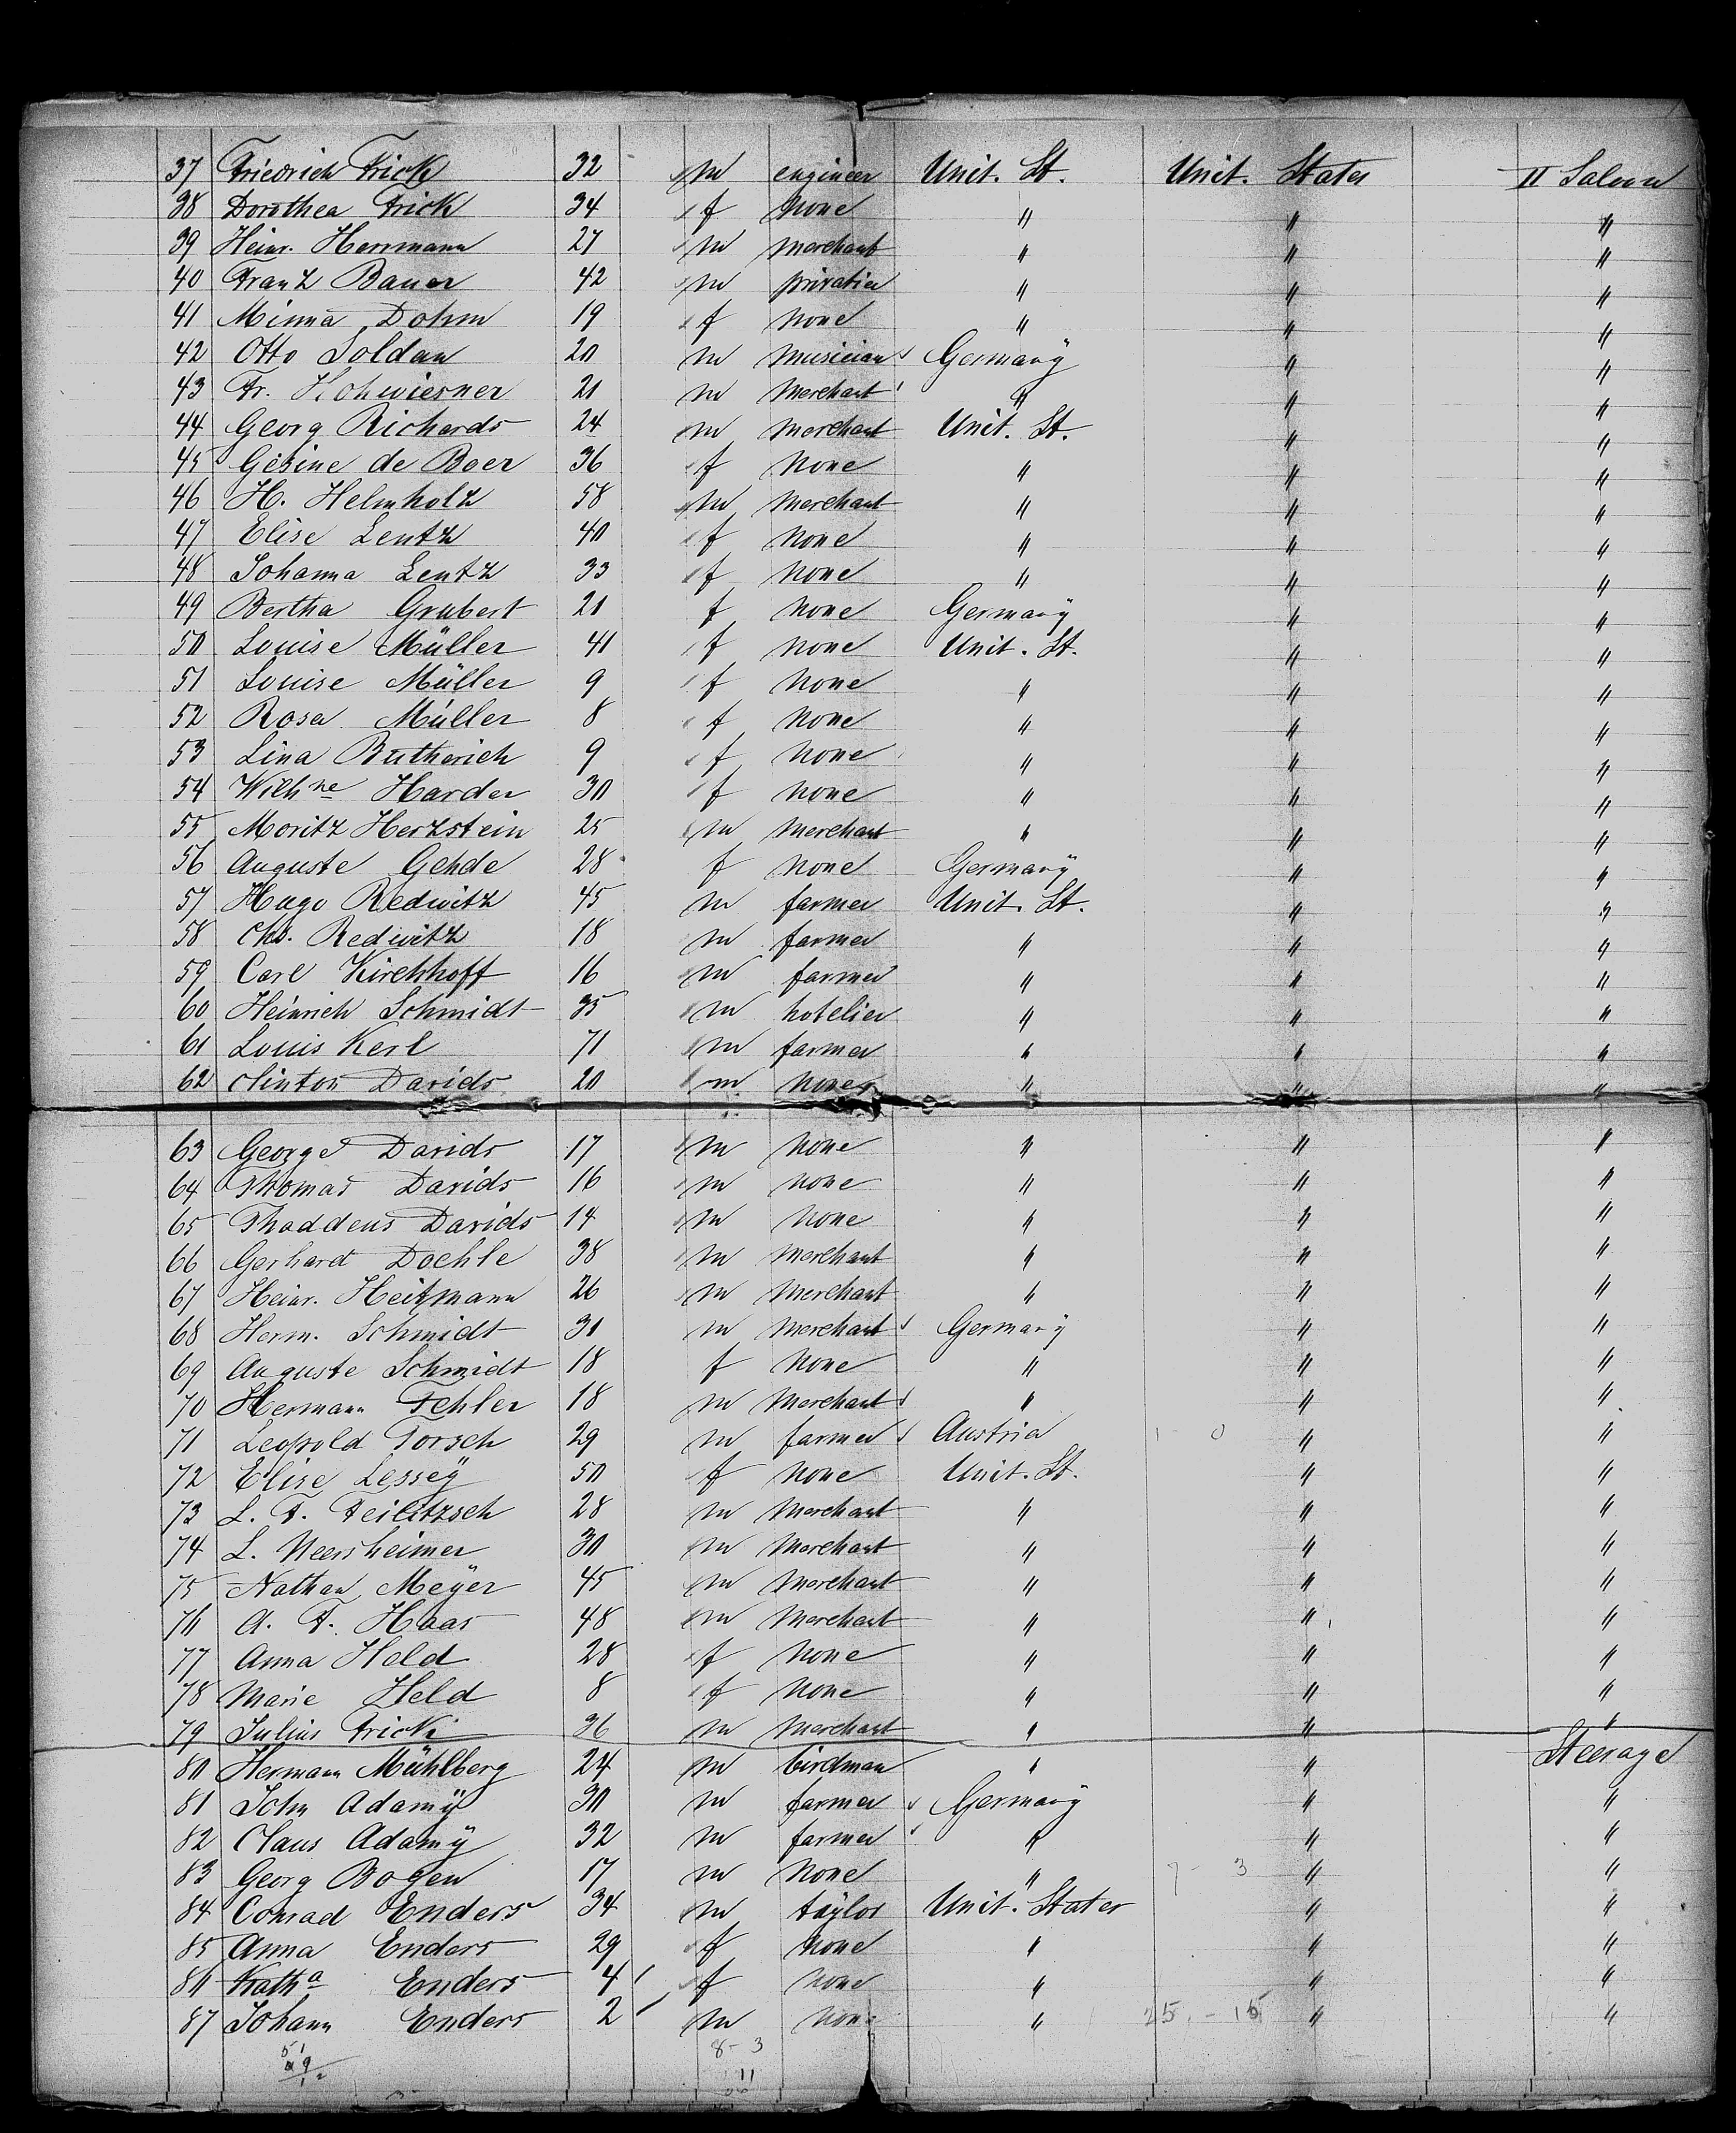 37 Friedrich Frick 32 m engineer Unit. St. Unit. States II Saloon
38 Dorothea Frick 34 f none " " "
39 Heinr. Herrmann 27 m merchant " " "
40 Franz Bauer 42 m privatier " " "
41 Minna Dohm 19 f none " " "
42 Otto Soldan 20 m musician Germany " "
43 Fr. Hohwiesner 21 m merchant " " "
44 Georg Richards 24 m merchant Unit. St. " "
45 Gesine de Boer 36 f none " " "
46 H. Helmholz 58 m merchant " " "
47 Elise Lentz 40 f none " " "
48 Johanna Lentz 33 f none " " "
49 Bertha Grubert 21 f none Germany " "
50 Louise Müller 41 f none Unit. St. " "
51 Louise Müller 9 f none " " "
52 Rosa Müller 8 f none " " "
53 Lina Butherich 9 f none " " "
54 Wilhne Harder 30 f none " " "
55 Moritz Herzstein 25 m merchant " " "
56 Auguste Gehde 28 f none Germany " "
57 Hugo Redwitz 45 m farmer Unit. St. " "
58 Chs. Redwitz 18 m farmer " " "
59 Carl Kirchhoff 16 m farmer " " "
60 Heinrich Schmidt 35 m hotelier " " "
61 Louis Kerl 71 m farmer " " "
62 Clinton Davids 20 m none " " "
63 George Davids 17 m none " " "
64 Thomas Davids 16 m none " " "
65 Thaddeus Davids 14 m none " " "
66 Gerhard Doehle 38 m merchant " " "
67 Heinr. Heitmann 26 m merchant " " "
68 Herm. Schmidt 31 m merchant Germany " "
69 Auguste Schmidt 18 f none " " "
70 Hermann Fehler 18 m merchant " " "
71 Leopold Torsch 29 m farmer Austria " "
72 Elise Lessey 50 f none Unit. St. " "
73 L. F. Feilitzsch 28 m merchant " " "
74 L. Neersheimer 30 m merchant " " "
75 Nathan Meÿer 45 m merchant " " "
76 A. F. Haas 48 m merchant " " "
77 Anna Held 28 f none " " "
78 Marie Held 8 f none " " "
79 Julius Frick 36 m merchant " " "
80 Hermann Mühlberg 24 m birdman " " Steerage
81 John Adamÿ 30 m farmer Germany " "
82 Claus Adamÿ 32 m farmer " " "
83 Georg Bogen 17 m none " 7 - 3 " "
84 Conrad Enders 34 m taÿlor Unit. States " "
85 Anna Enders 29 f none " " "
86 Katha Enders 4 f none " " "
87 Johann Enders 2 m none " 25 - 15 " "
8 - 3
11